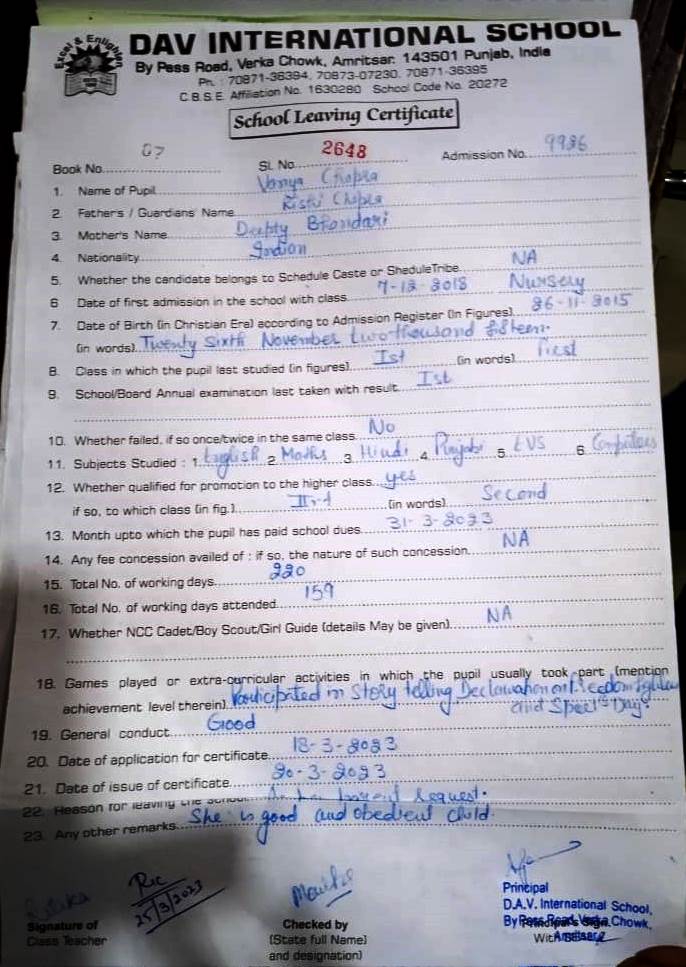 Excel & Enlighten
DAV INTERNATIONAL SCHOOL
By Pass Road, Verka Chowk, Amritsar. 143501 Punjab, India
Ph. : 70871-36394, 70873-07230, 70871-36395
C.B.S.E. Affiliation No. 1630280 School Code No. 20272
School Leaving Certificate
Book No. 07 Sl. No. 2648 Admission No. 9936
1. Name of Pupil Vanya Chopra
2. Father's / Guardians' Name Rishi Chopra
3. Mother's Name Deepty Bhandari
4. Nationality Indian
5. Whether the candidate belongs to Schedule Caste or SheduleTribe NA
6 Date of first admission in the school with class 7-12-2018 Nursery
7. Date of Birth (in Christian Era) according to Admission Register (In Figures) 26-11-2015
(in words) Twenty Sixth November two thousand fifteen.
8. Class in which the pupil last studied (in figures) Ist (in words) First
9. School/Board Annual examination last taken with result Ist
10. Whether failed, if so once/twice in the same class No
11. Subjects Studied : 1. English 2. Maths 3. Hindi 4. Punjabi 5. EVS 6. Computers
12. Whether qualified for promotion to the higher class yes
if so, to which class (in fig.) IInd (in words) Second
13. Month upto which the pupil has paid school dues 31-3-2023
14. Any fee concession availed of : if so, the nature of such concession NA
15. Total No. of working days 220
16. Total No. of working days attended 159
17. Whether NCC Cadet/Boy Scout/Girl Guide (details May be given) NA
18. Games played or extra-curricular activities in which the pupil usually took part (mention
achievement level therein) Participated in Story telling Declamation
and Sports Day.
19. General conduct Good
20. Date of application for certificate 18-3-2023
21. Date of issue of certificate 20-3-2023
22. Reason for leaving the school Request.
23. Any other remarks She is good and obedient child.
25/3/2023
Signature of
Class Teacher
Checked by
(State full Name)
and designation)
Principal
D.A.V. International School,
By Pass Road, Verka Chowk,
Amritsar